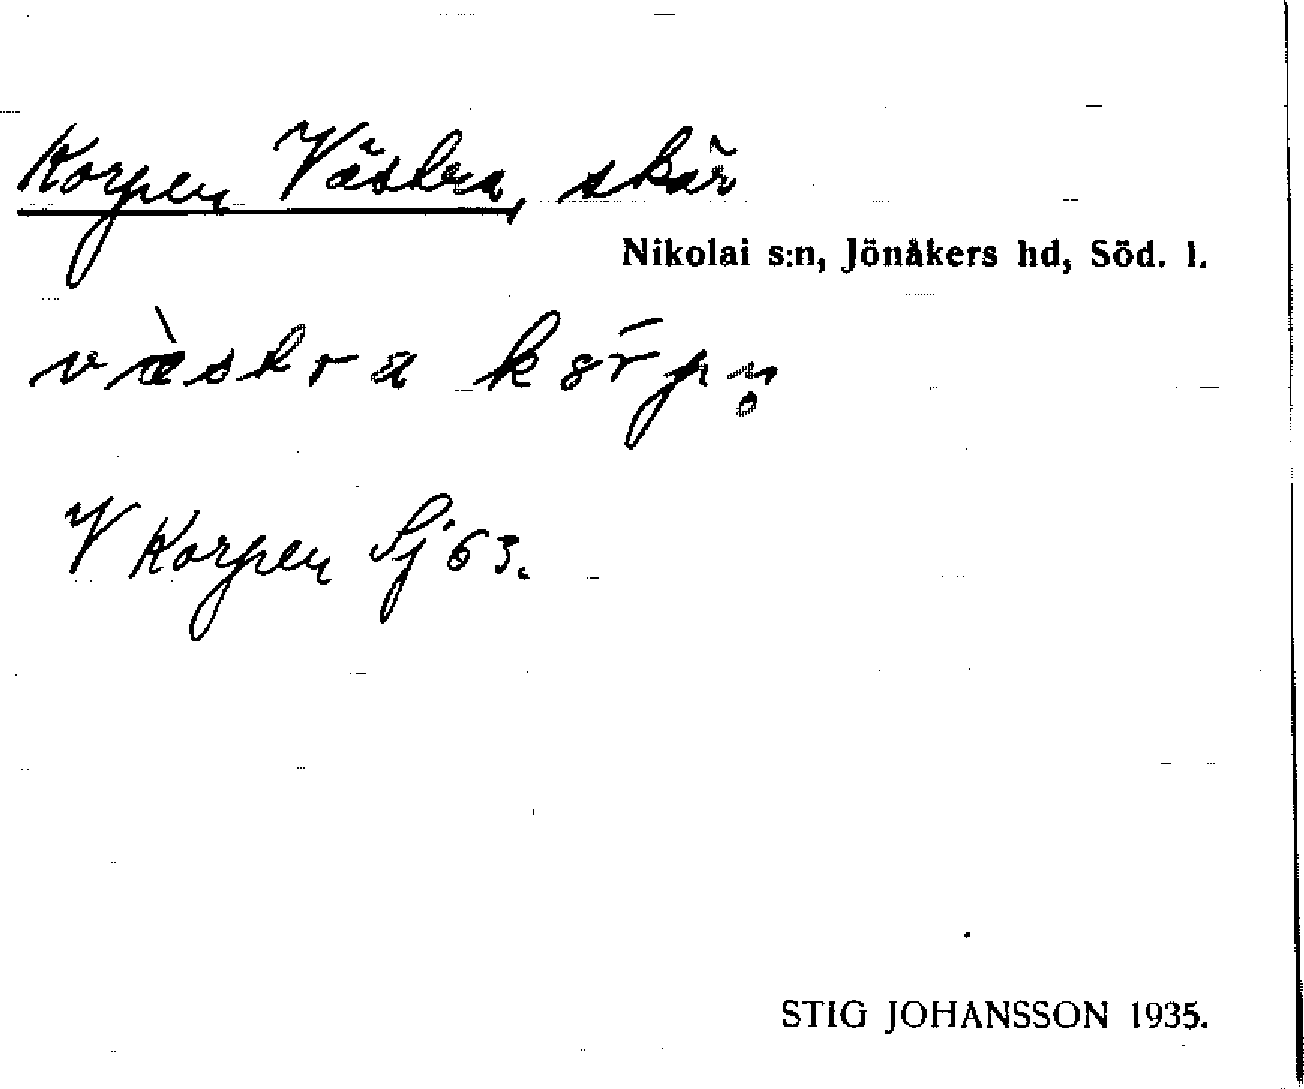 Korpen Västra, skär
Nikolai s:n, Jönåkers hd, Söd. l.
væ̀stra
V Korpen Sj 63.
STIG JOHANSSON 1935.